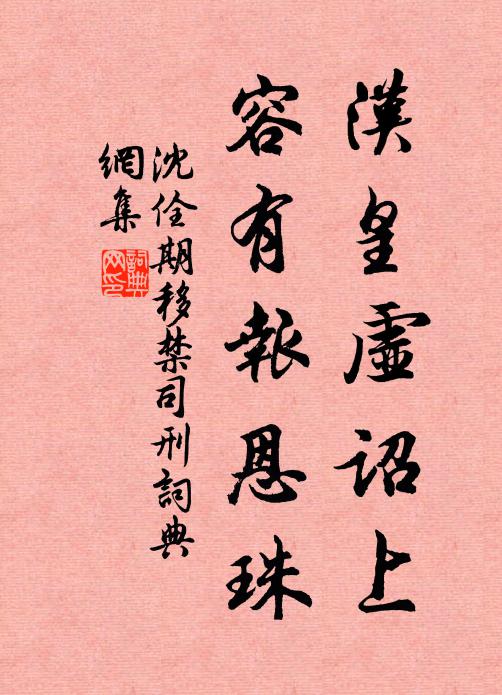 漢皇虛詔上
容有報恩珠
沈佺期移禁司刑詞典
網集
詞典
网印